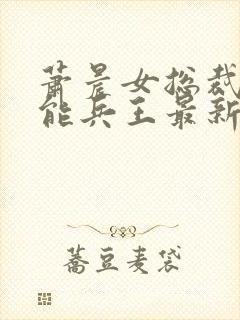 萧晨女总裁
能兵王最新
荞豆麦袋